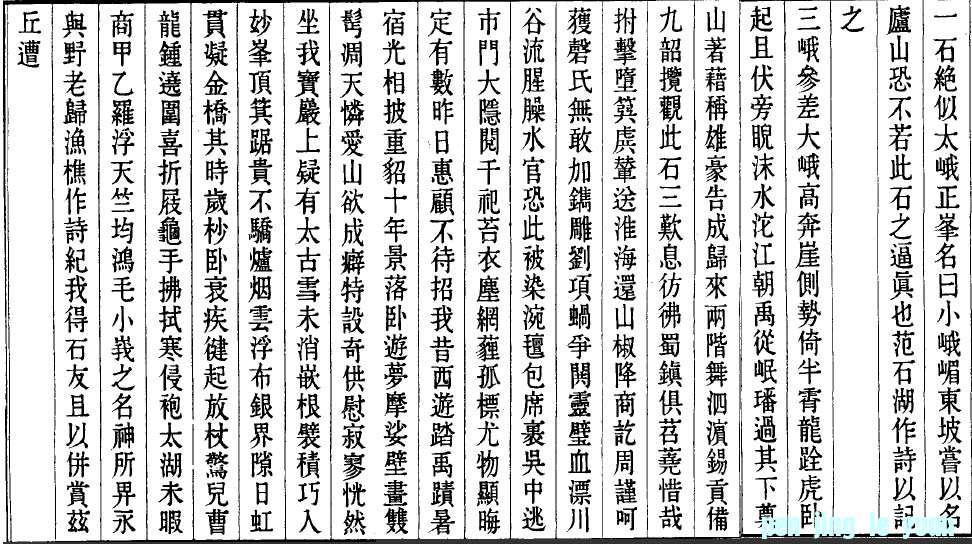 一石絶似太峨正峯名曰小峨嵋東坡嘗以名
廬山恐不若此石之逼眞也范石湖作詩以記
之
三峨參差大峨高奔崖側勢倚半霄龍跧虎卧
起且伏旁睨沫水沱江朝禹從岷璠過其下尊
山著藉稱雄豪告成歸來兩階舞泗濱錫貢備
九韶攬觀此石三歎息彷彿蜀鎮俱苕蕘惜哉
拊擊墮簨虡輦送淮海還山椒降商訖周謹呵
䕶磬氏無敢加鐫雕劉項蝸爭閧靈璧血漂川
谷流腥臊水官恐此被染涴氊包席裹吳中逃
市門大隱閱千祀苔衣塵網薶孤標尤物顯晦
定有數昨日惠顧不待招我昔西遊踏禹蹟暑
宿光相披重貂十年景落卧遊夢摩娑壁畫雙
髩凋天憐愛山欲成癖特設奇供慰寂寥恍然
坐我寶巖上疑有太古雪未消嵌根襞積巧入
妙峯頂箕踞貴不驕爐烟雲浮布銀界隙日虹
貫凝金橋其時歲杪卧衰疾徤起放杖驚兒曹
龍鍾遶圍喜折屐龜手拂拭寒侵袍太湖未暇
商甲乙羅浮天竺均鴻毛小峩之名神所畀永
與野老歸漁樵作詩紀我得石友且以併賞玆
丘遭